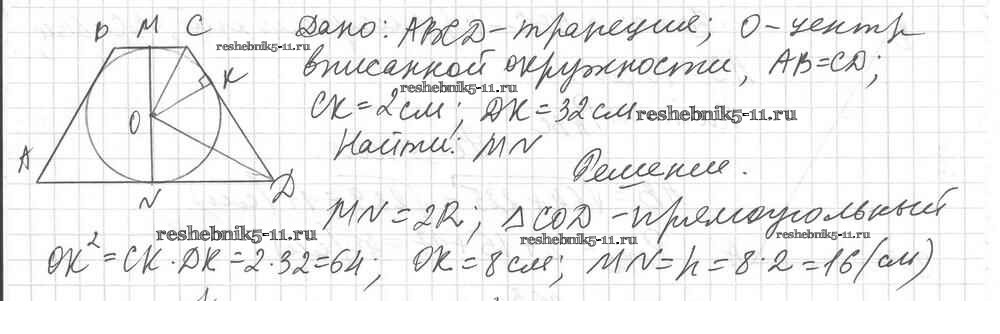 B M C
Дано: ABCD - трапеция; O - центр
reshebnik5-11.ru
вписанной окружности, AB = CD;
K
reshebnik5-11.ru
O
CK = 2 см; DK = 32 см
reshebnik5-11.ru
Найти: MN
A
Решение.
N
D
MN = 2R; △COD - прямоугольный
reshebnik5-11.ru
reshebnik5-11.ru
OK² = CK · DK = 2 · 32 = 64; OK = 8 см; MN = h = 8 · 2 = 16 (см)